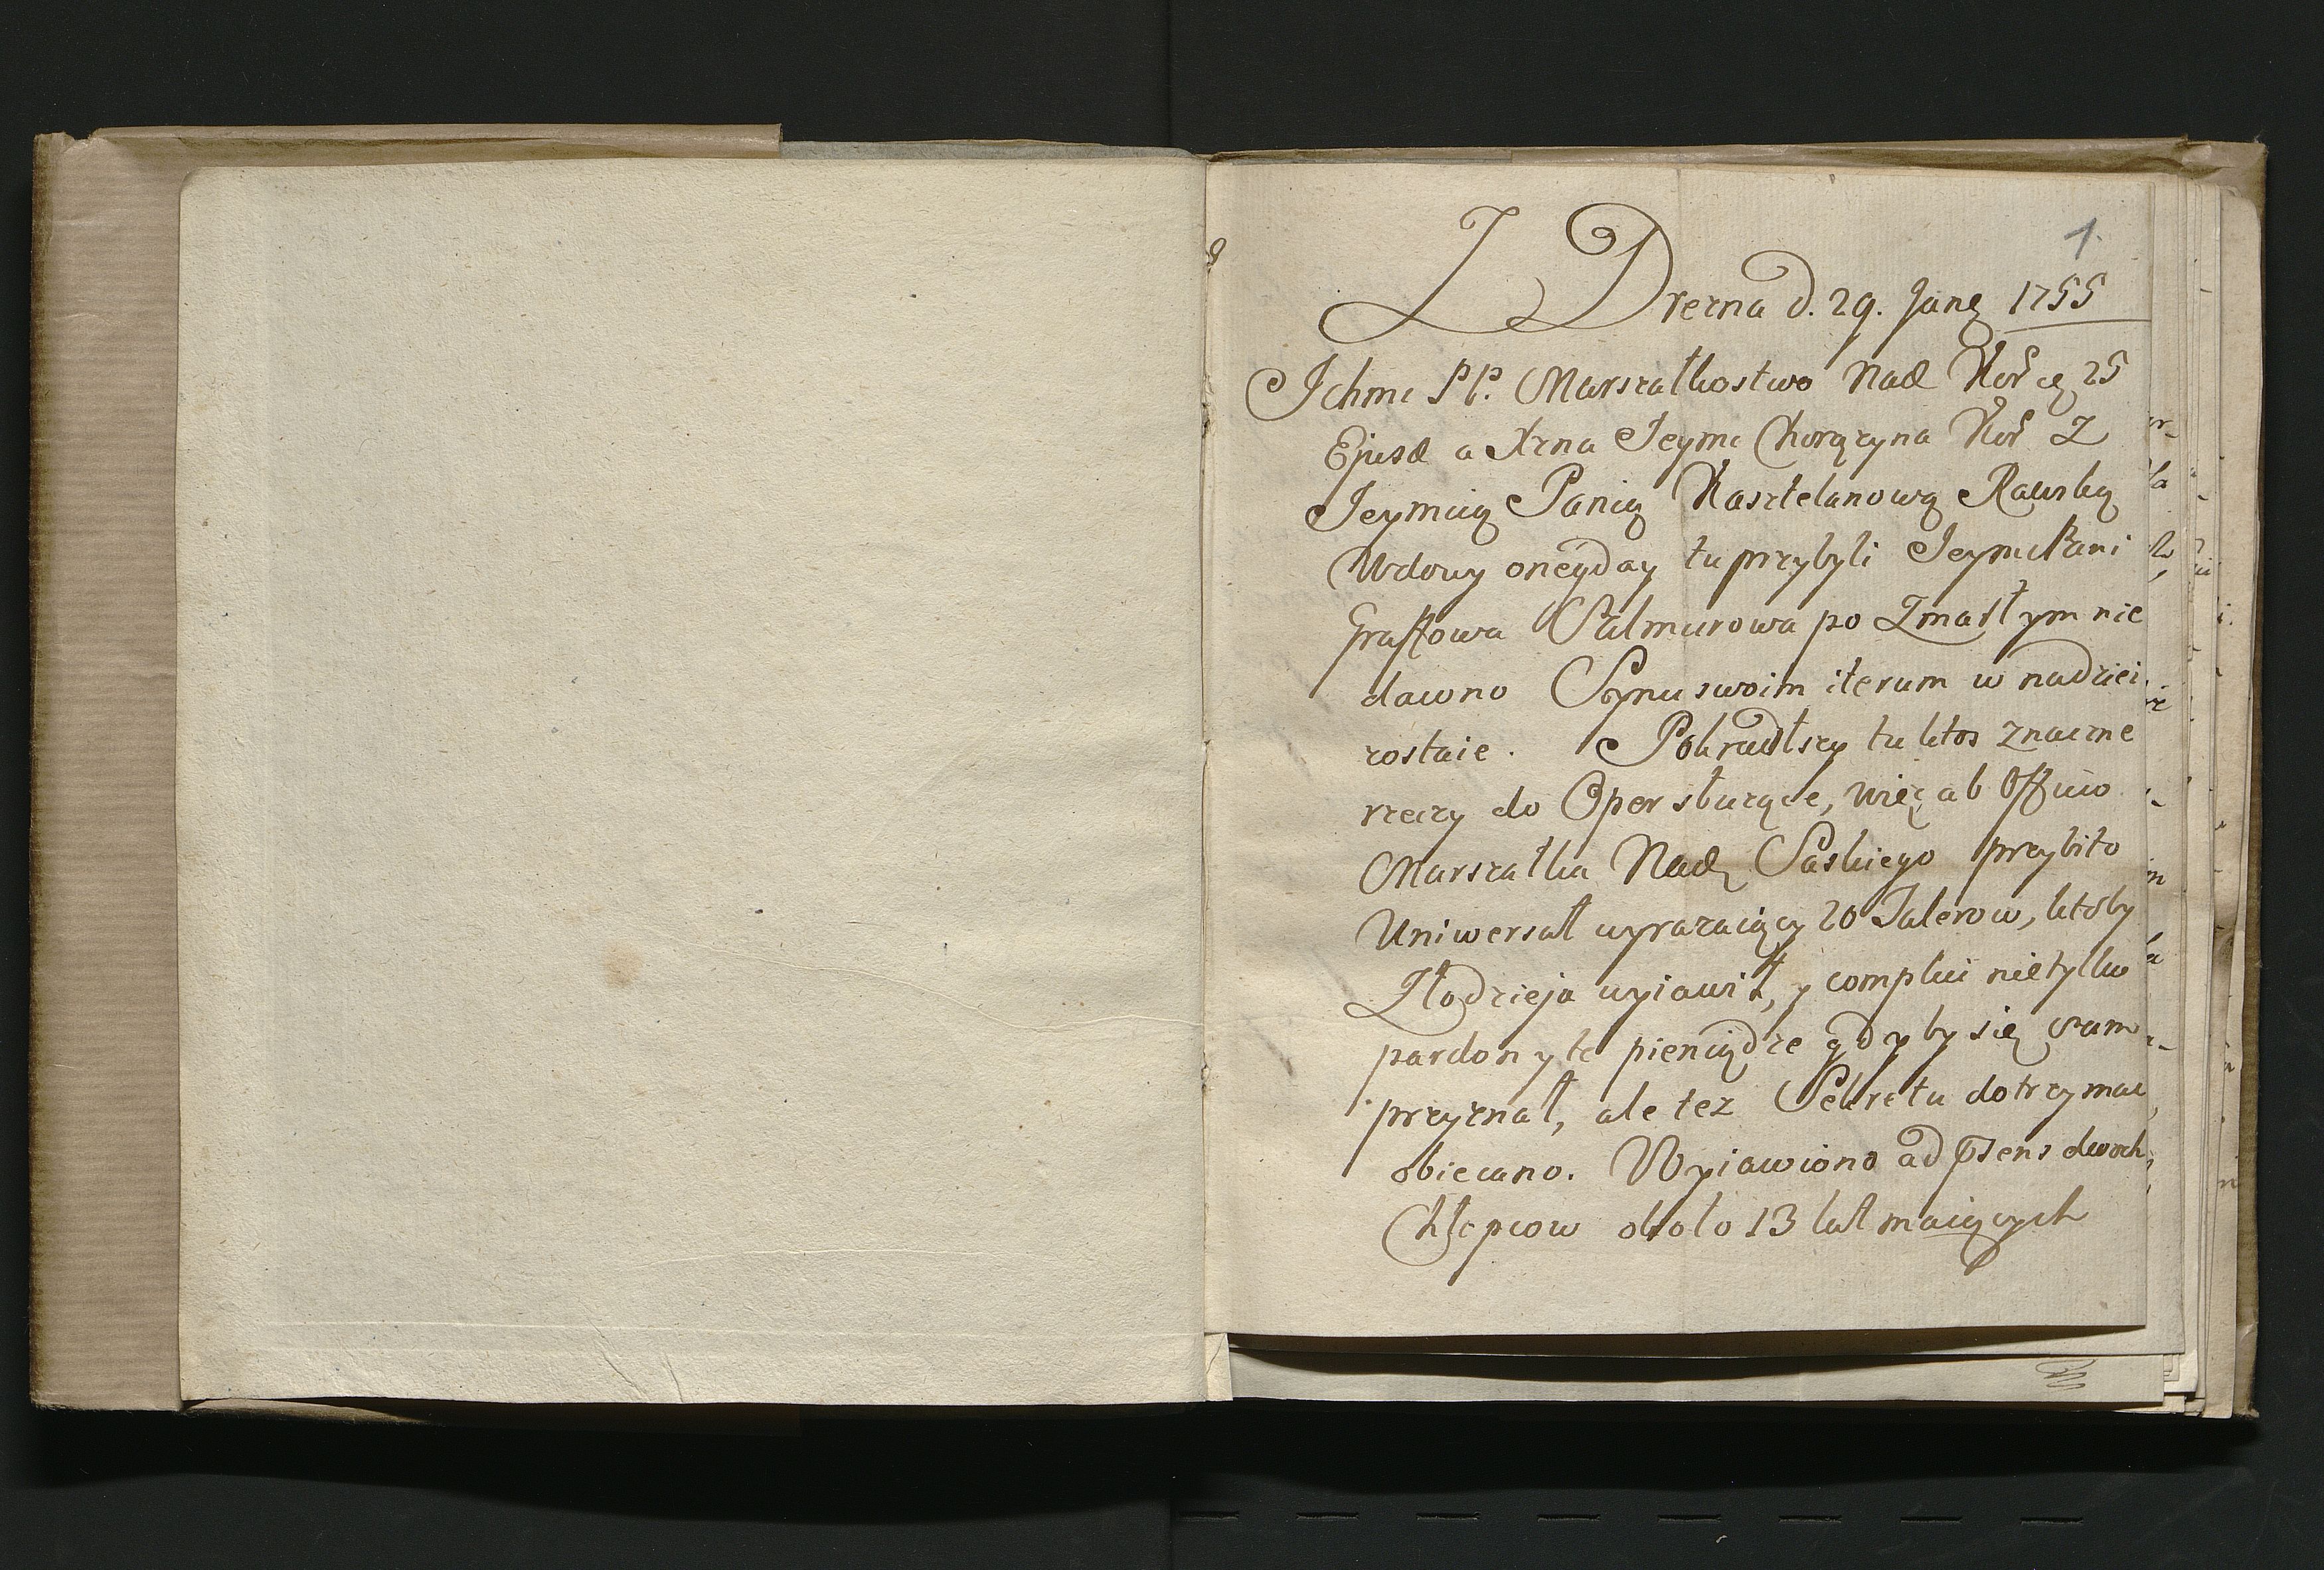 1.
Z Drezna d. 29. Jany 1755
Ichmć PP. Marszałkostwo Nad Kor̃cę 25
Ejusd a Xzna Jeymć Chorązyna Kor̃ Z
Jeymcią Panią Kasztelanową Rawską
Wdowy onegday tu przybyli Jeymć Pani
Graffowa Salmurowa po Zmarłym nie
dawno Synu swoim iterum w nadziei
zostaie. Pokradłszy tu ktos znaczne
rzeczy do Oper słuzące, więc ab Officio
Marszałka Nad. Saskiego przybito
Uniwersał wyrazaiący 20 Talerow, ktoby
Złodzieja wyiawił, y complici nietylko
pardon y te pieniądze gdyby się sam
przyznał, ale tez Sekretu dotrzymac
obiecano. Wyiawiono ad psens dwoch
Chłopcow około 13 lat maiących